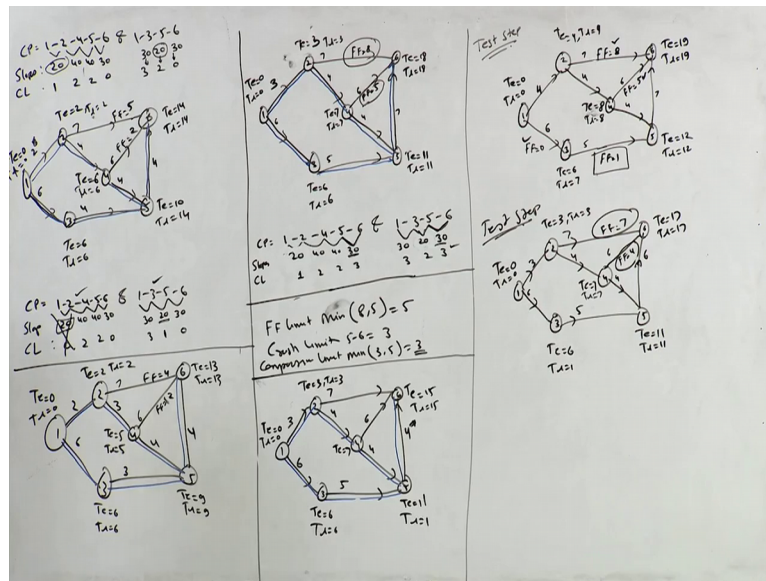 CP= 1-2-4-5-6 & 1-3-5-6
Slope: 20 40 40 30 30 20 30
CL 1 2 2 0 3 2 0
Te=2 TL=2
7
FF=5
Te=14
TL=14
Te=0
2
4
6
FF=2
4
6
Te=6
TL=6
4
4
Te=10
TL=14
Te=6
TL=6
CP= 1-2-4-5-6 & 1-3-5-6
Slop 20 40 40 30 30 20 30
CL: 1 2 2 0 3 1 0
Te=2 TL=2
7
FF=4
Te=13
TL=13
Te=0
TL=0
2
3
6
FF=2
1
6
Te=5
TL=5
4
4
3
Te=9
TL=9
Te=6
TL=6
Te=3 TL=3
7
FF=8
Te=18
TL=18
Te=0
TL=0
3
4
6
FF=5
1
6
Te=7
TL=7
4
7
5
Te=11
TL=11
Te=6
TL=6
CP= 1-2-4-5-6 & 1-3-5-6
Slope 20 40 40 30 30 20 30
CL 1 2 2 3 3 2 3
FF limit min (8,5) = 5
Crash limit 5-6 = 3
Comparison limit min (3,5) = 3
Te=3, TL=3
7
Te=15
TL=15
Te=0
TL=0
3
4
6
4
1
6
Te=7
4
5
Te=11
TL=1
Te=6
TL=6
Test Step
Te=4, TL=4
7
FF=8
Te=19
TL=19
Te=0
TL=0
4
4
6
FF=5
1
Te=8
TL=8
4
7
6
FF=0
5
FF=1
Te=12
TL=12
Te=6
TL=7
Test Step
Te=3, TL=3
7
FF=7
Te=17
TL=17
Te=0
TL=0
3
4
6
FF=4
1
6
Te=7
TL=7
4
6
5
Te=11
TL=11
Te=6
TL=1